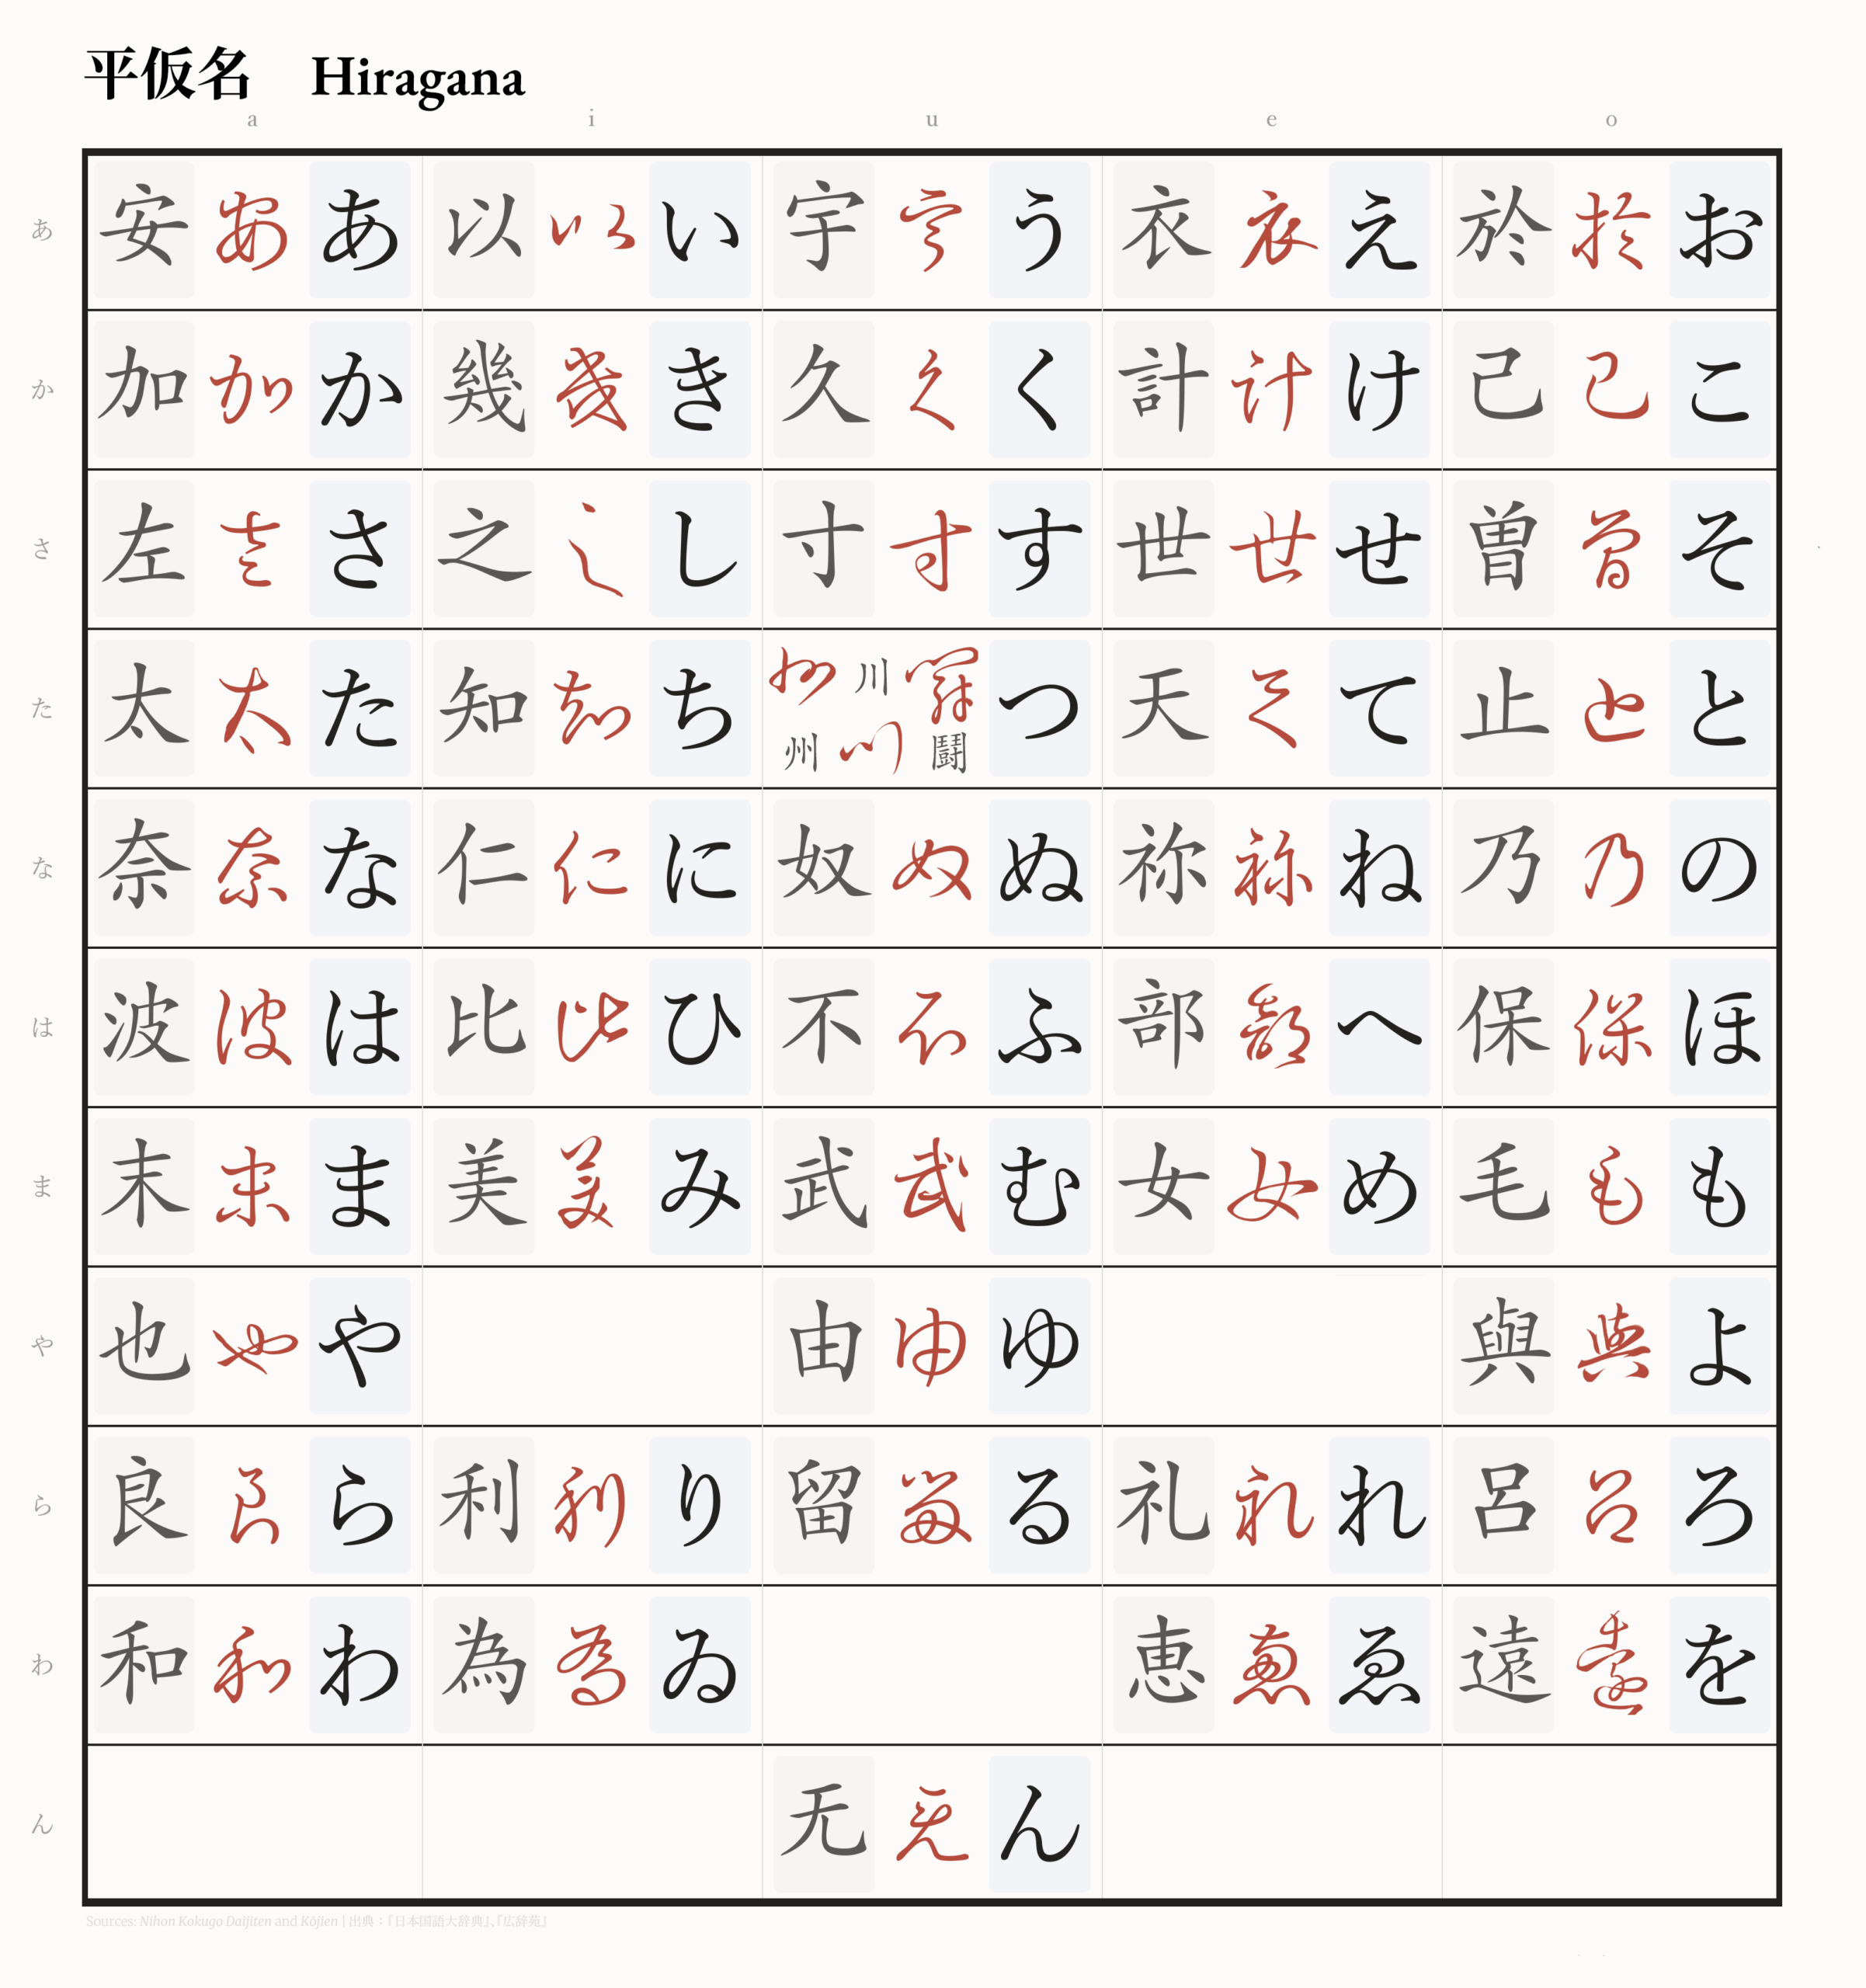 平仮名 Hiragana
a i u e o
あ 安 あ あ 以 い い 宇 う う 衣 え え 於 お お
か 加 か か 幾 き き 久 く く 計 け け 己 こ こ
さ 左 さ さ 之 し し 寸 す す 世 せ せ 曽 そ そ
た 太 た た 知 ち ち 州 川 闘 つ 天 て て 止 と と
な 奈 な な 仁 に に 奴 ぬ ぬ 祢 ね ね 乃 の の
は 波 は は 比 ひ ひ 不 ふ ふ 部 へ へ 保 ほ ほ
ま 末 ま ま 美 み み 武 む む 女 め め 毛 も も
や 也 や や 由 ゆ ゆ 與 よ よ
ら 良 ら ら 利 り り 留 る る 礼 れ れ 呂 ろ ろ
わ 和 わ わ 為 ゐ ゐ 恵 ゑ ゑ 遠 を を
ん 无 ん ん
Sources: Nihon Kokugo Daijiten and Kōjien | 出典：『日本国語大辞典』、『広辞苑』